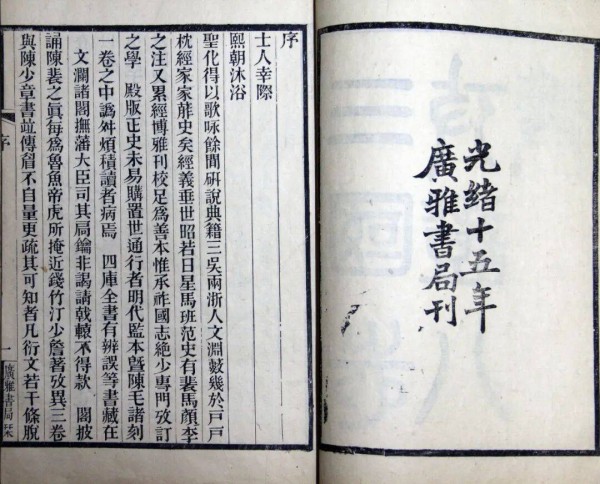 光緒十五年
廣雅書局刊
序
士人幸際
熙朝沐浴
聖化得以歌咏餘閒硏說典籍三吳兩浙人文淵藪幾於戶戶
枕經家家葄史矣經義垂世昭若日星馬班范史有裴馬顏李
之注又累經博雅刊校足爲善本惟承祚國志絶少專門攷訂
之學 殿版正史未易購置世通行者明代監本曁陳毛諸刻
一卷之中譌舛煩積讀者病焉 四庫全書有辨誤等書藏在
文瀾諸閣撫藩大臣司其局鑰非謁請戟轅不得款 閣披
誦陳裴之眞每爲魯魚帝虎所掩近錢竹汀少詹著攷異三卷
與陳少章書竝傳眉不自量更疏其可知者凡衍文若干條脫
序
一
廣雅書局栞